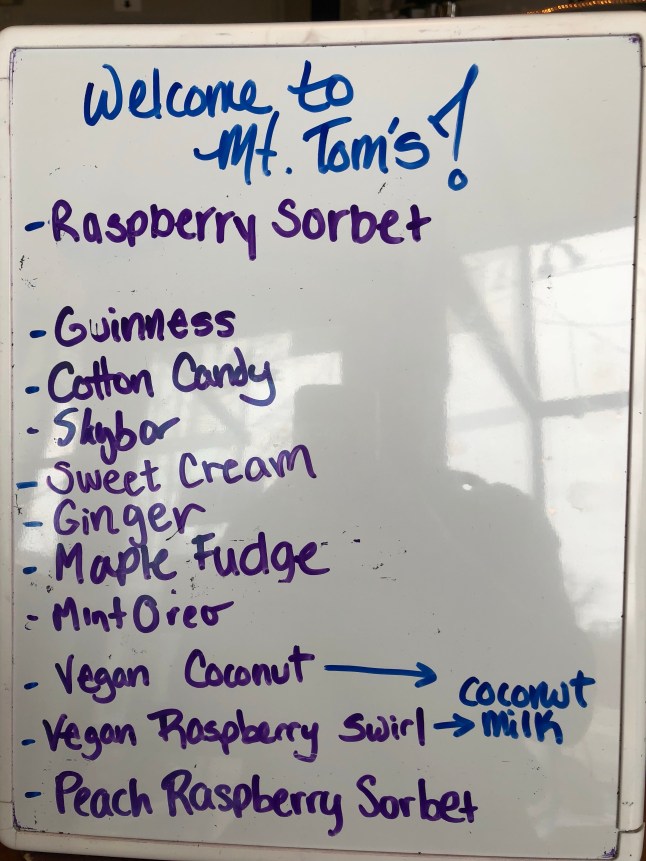 Welcome to
Mt. Tom's!
- Raspberry Sorbet
- Guinness
- Cotton Candy
- Skybar
- Sweet Cream
- Ginger
- Maple Fudge
- Mint Oreo
- Vegan Coconut →
coconut
- Vegan Raspberry Swirl → milk
- Peach Raspberry Sorbet